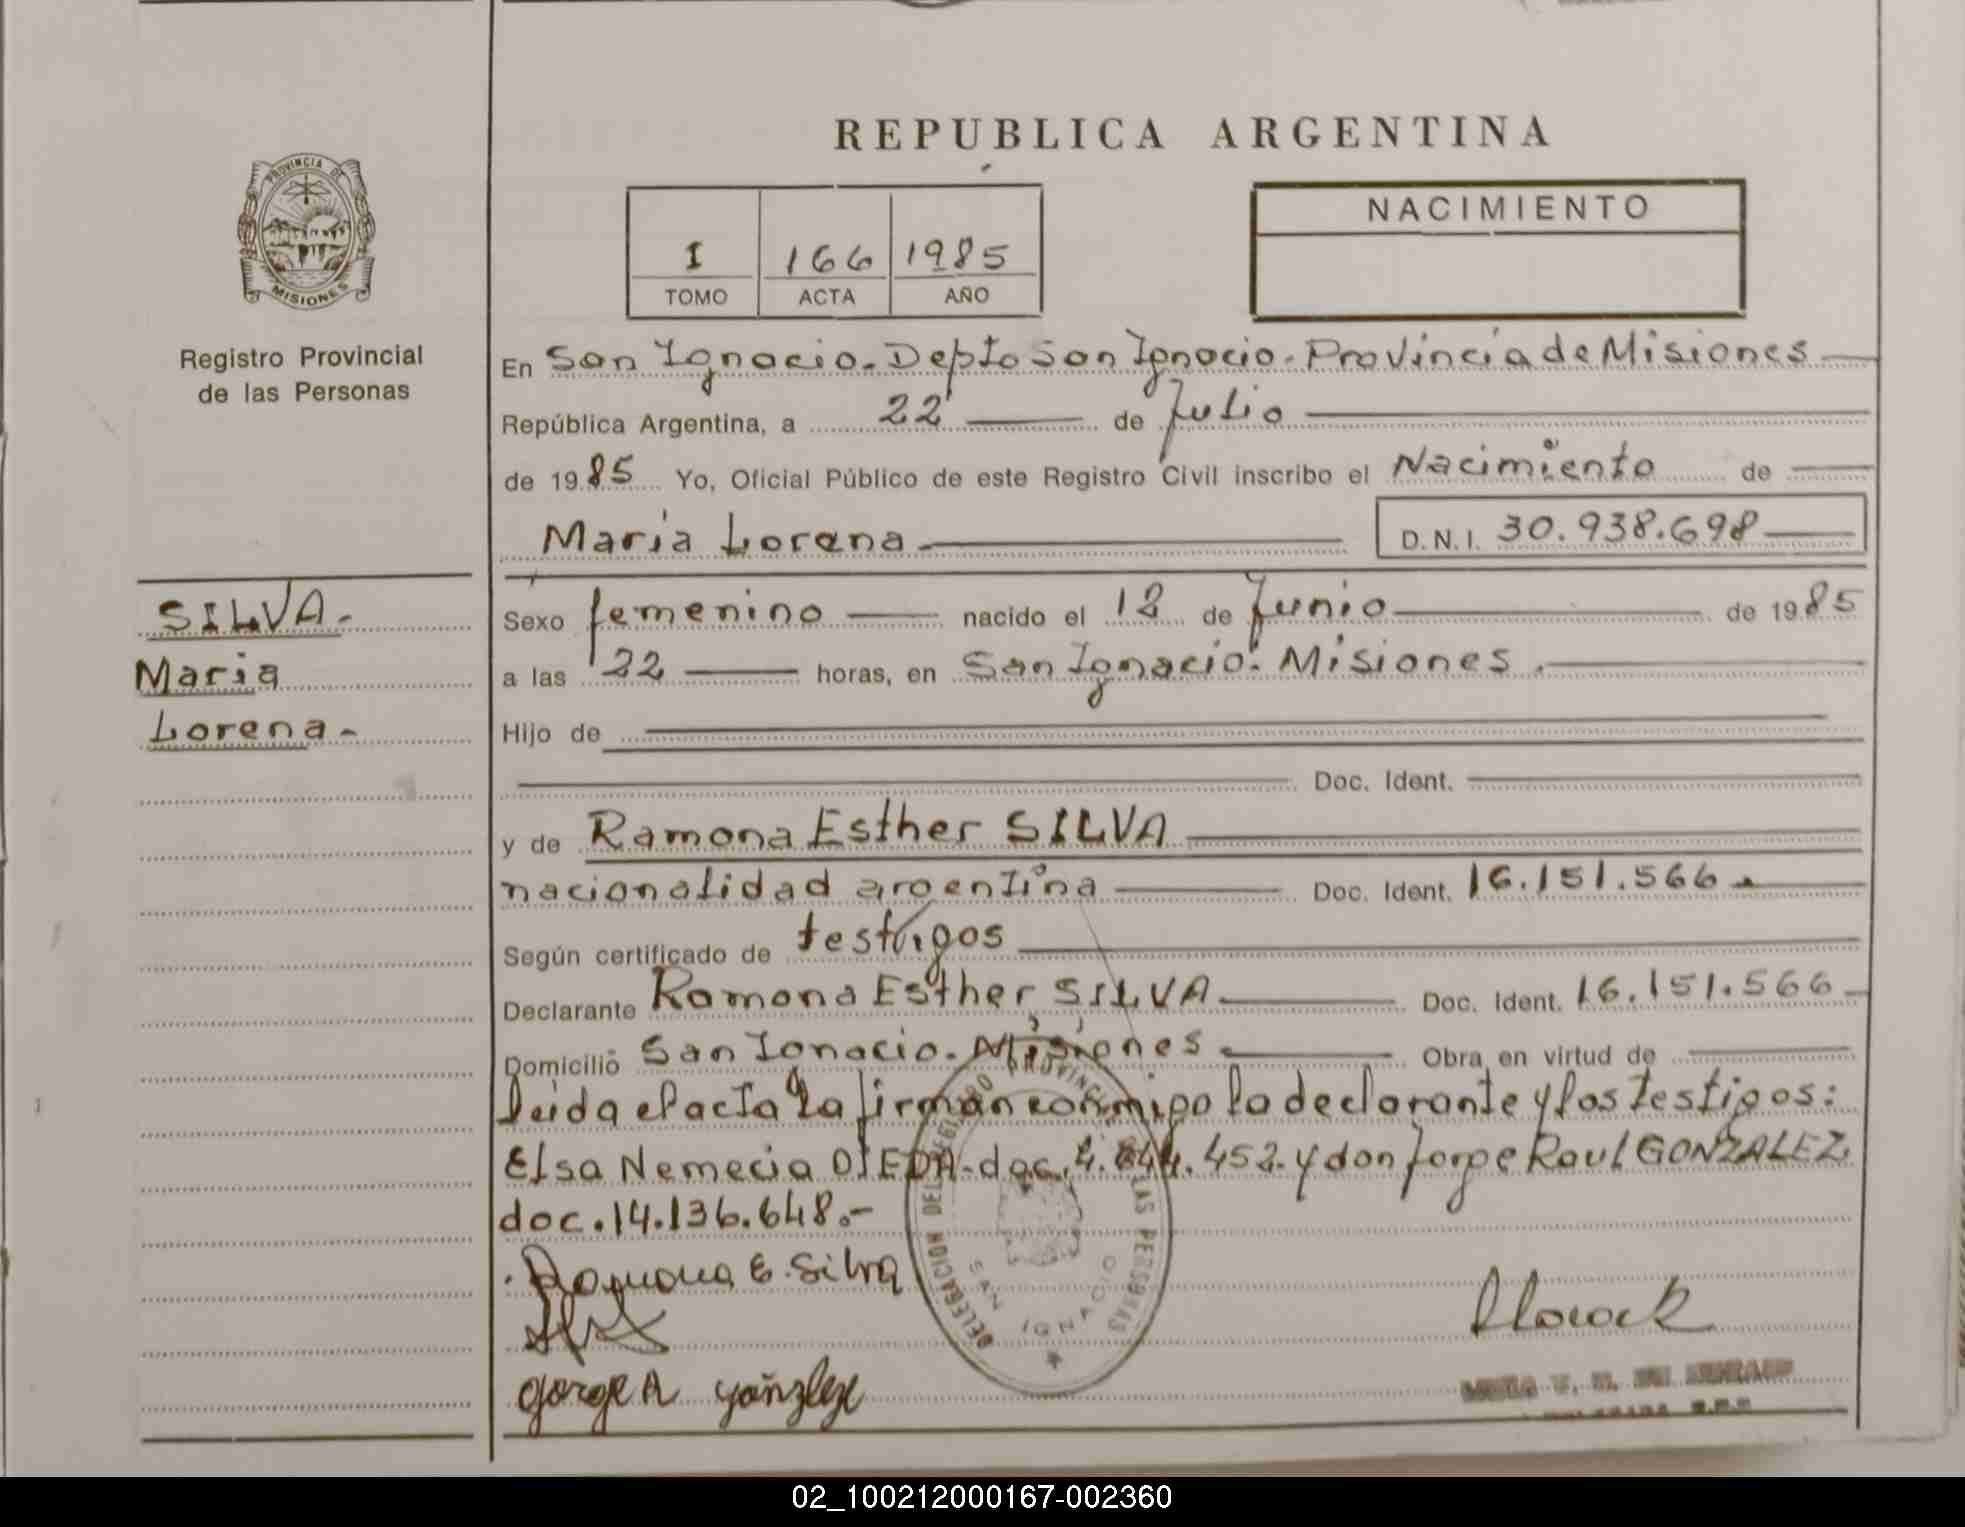 REPUBLICA ARGENTINA
PROVINCIA DE
MISIONES
Registro Provincial
de las Personas
I 166 1985
TOMO ACTA AÑO
NACIMIENTO
En San Ignacio. Depto San Ignacio. Provincia de Misiones
República Argentina, a 22 de Julio
de 1985 Yo, Oficial Público de este Registro Civil inscribo el Nacimiento de
Maria Lorena D.N.I. 30.938.698
SILVA.
Maria
Lorena-
Sexo femenino nacido el 12 de Junio de 1985
a las 22 horas, en San Ignacio. Misiones.
Hijo de
Doc. Ident.
y de Ramona Esther SILVA
nacionalidad argentina Doc. Ident. 16.151.566
Según certificado de testigos
Declarante Ramona Esther SILVA Doc. Ident. 16.151.566
Domicilio San Ignacio. Misiones. Obra en virtud de
leida el acta la firman conmigo la declarante y los testigos:
Elsa Nemecia OJEDA. doc. 4.844.452. y don Jorge Raul GONZALEZ
doc. 14.136.648.-
Ramona E. Silva
DELEGACION DEL REGISTRO PROVINCIAL LAS PERSONAS
SAN IGNACIO
02_100212000167-002360